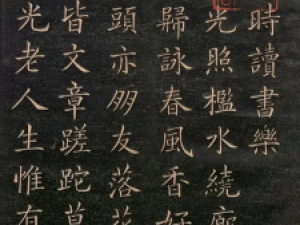 時讀書樂
光照檻水繞廊
歸詠春風香好
頭亦朋友落花
皆文章蹉跎莫
光老人生惟有